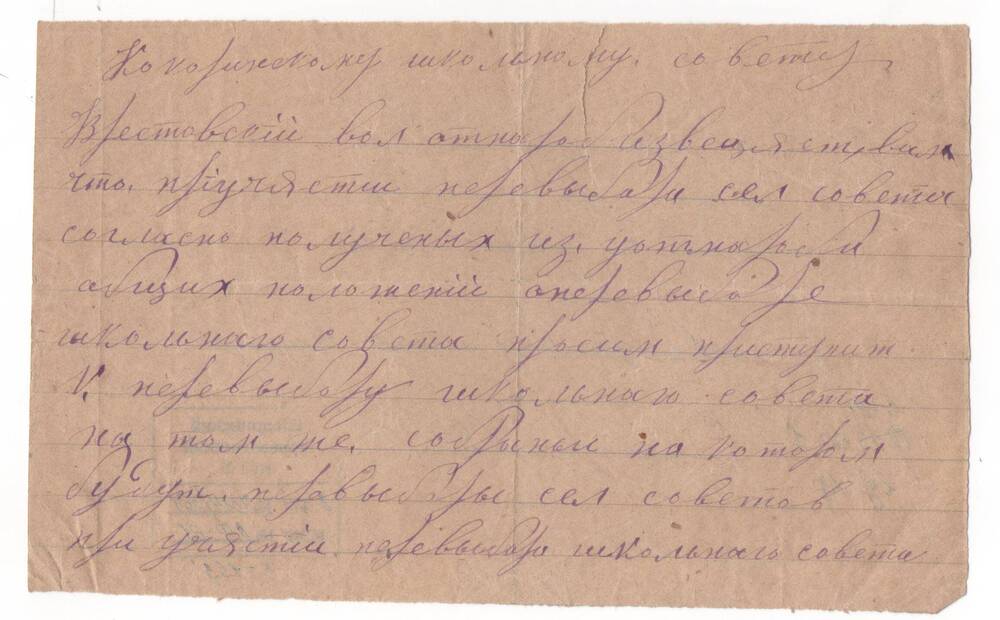 школьному совету
вол отнароб извещяет вам
что. приучястии перевыбора сел совета
согласно полученых из. уотнароба
общих положений оперевыборе
школьнаго совета просим приступит
К перевыбору школьнаго совета
на том же. собрании на котором
будут. перевыборы сел советов
при учястии перевыбора школьнаго совета